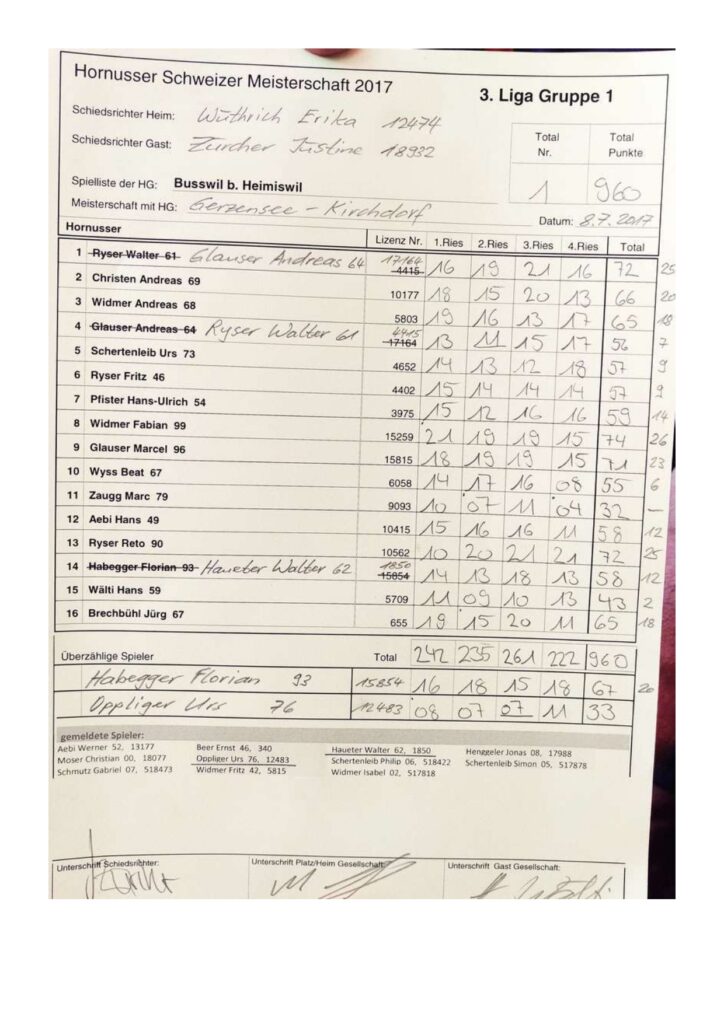 Hornusser Schweizer Meisterschaft 2017
3. Liga Gruppe 1
Schiedsrichter Heim: Wüthrich Erika 12474
Schiedsrichter Gast: Zürcher Justine 18932
Total Nr. Total Punkte
1 960
Spielliste der HG: Busswil b. Heimiswil
Meisterschaft mit HG: Gerzensee - Kirchdorf
Datum: 8.7.2017
Hornusser Lizenz Nr. 1.Ries 2.Ries 3.Ries 4.Ries Total
1 Ryser Walter 61 Glauser Andreas 64 17164 4415 16 19 21 16 72 25
2 Christen Andreas 69 10177 18 15 20 13 66 20
3 Widmer Andreas 68 5803 19 16 13 17 65 18
4 Glauser Andreas 64 Ryser Walter 61 4415 17164 13 11 15 17 56 7
5 Schertenleib Urs 73 4652 14 13 12 18 57 9
6 Ryser Fritz 46 4402 15 14 14 14 57 9
7 Pfister Hans-Ulrich 54 3975 15 12 16 16 59 14
8 Widmer Fabian 99 15259 21 19 19 15 74 26
9 Glauser Marcel 96 15815 18 19 19 15 71 23
10 Wyss Beat 67 6058 14 17 16 08 55 6
11 Zaugg Marc 79 9093 10 07 11 04 32 —
12 Aebi Hans 49 10415 15 16 16 11 58 12
13 Ryser Reto 90 10562 10 20 21 21 72 25
14 Habegger Florian 93 Haueter Walter 62 1850 15854 14 13 18 13 58 12
15 Wälti Hans 59 5709 11 09 10 13 43 2
16 Brechbühl Jürg 67 655 19 15 20 11 65 18
Überzählige Spieler Total 242 235 261 222 960
Habegger Florian 93 15854 16 18 15 18 67 20
Oppliger Urs 76 12483 08 07 07 11 33
gemeldete Spieler:
Aebi Werner 52, 13177 Beer Ernst 46, 340 Haueter Walter 62, 1850 Henggeler Jonas 08, 17988
Moser Christian 00, 18077 Oppliger Urs 76, 12483 Schertenleib Philip 06, 518422 Schertenleib Simon 05, 517878
Schmutz Gabriel 07, 518473 Widmer Fritz 42, 5815 Widmer Isabel 02, 517818
Unterschrift Schiedsrichter: Unterschrift Platz/Heim Gesellschaft: Unterschrift Gast Gesellschaft: